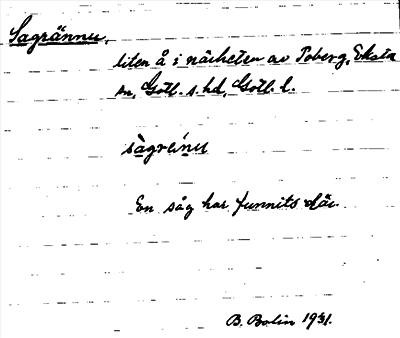 Sagrännu,
liten å i närheten av Toberg, Eksta
sn, Gotl. s. hd, Gotl. l.
sàgrénu
En såg har funnits där.
B. Bolin 1931.